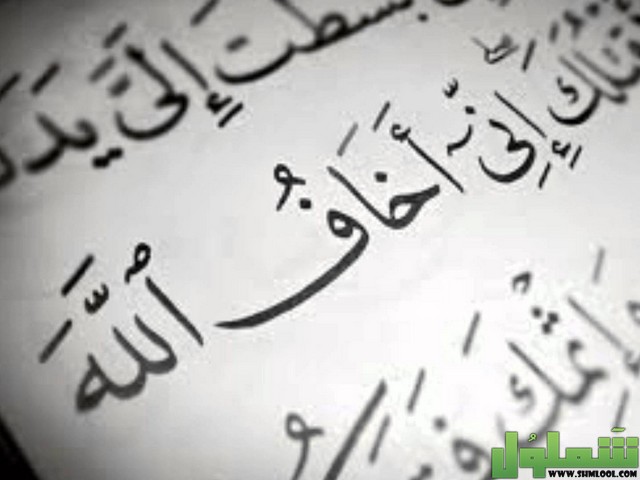 بَسَطتَ إِلَىَّ يَدَكَ
إِنِّىٓ أَخَافُ ٱللَّهَ
وَإِثْمِكَ
شملول
WWW.SHMLOOL.COM